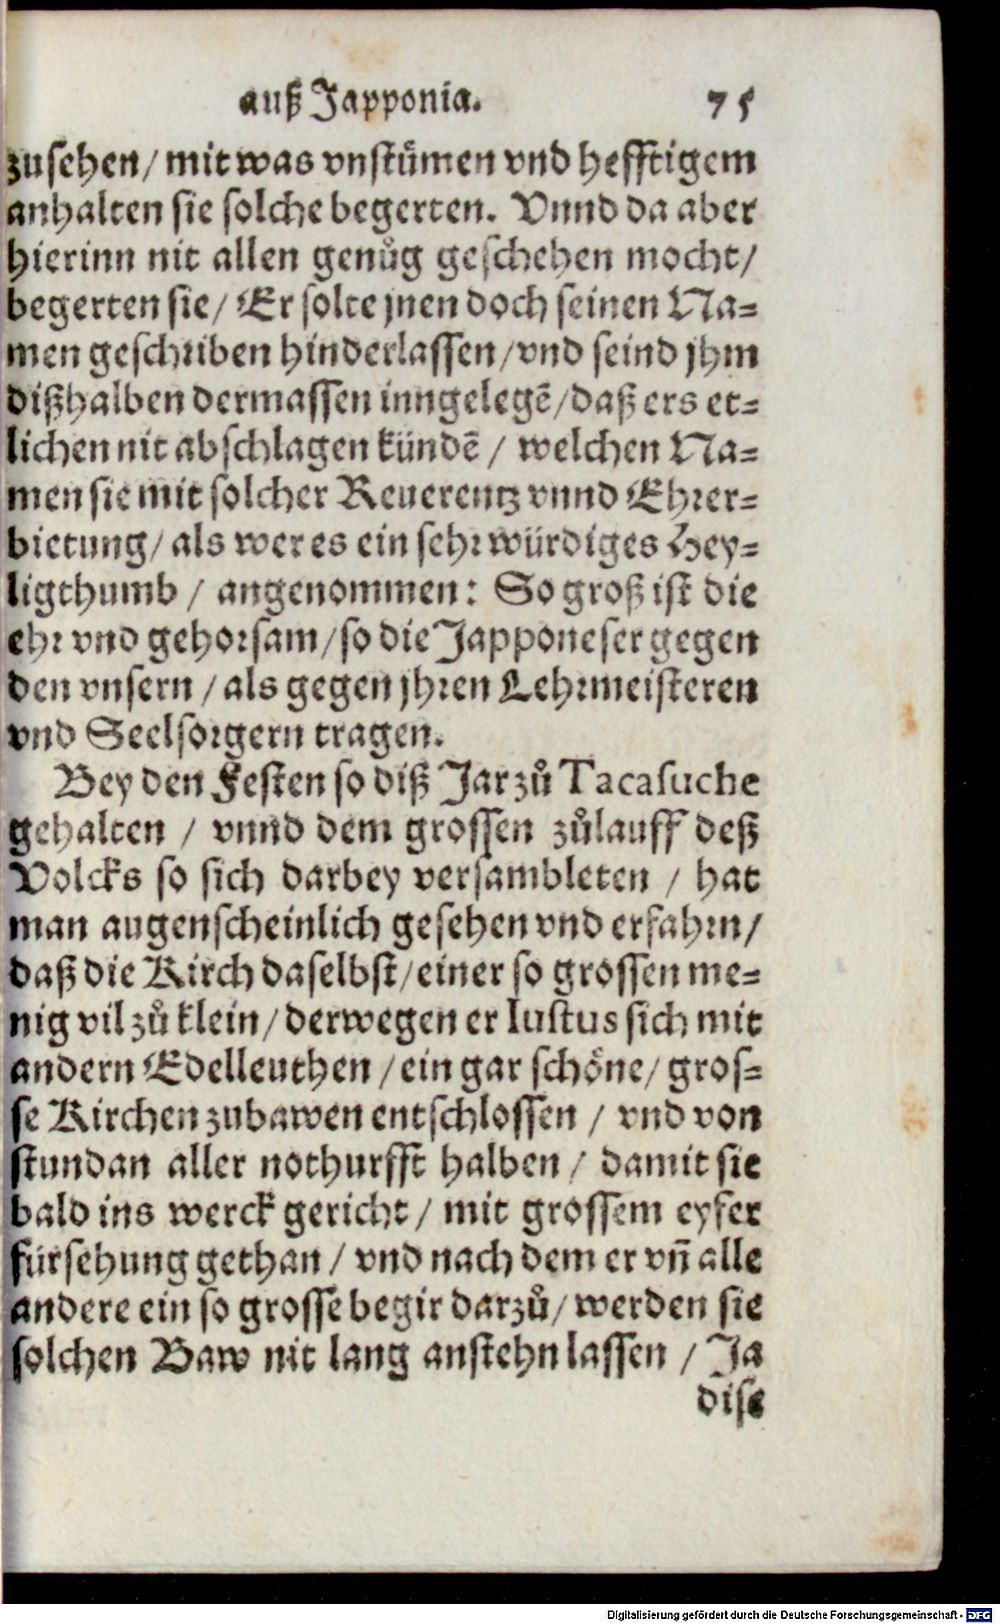 auß Japponia. 75
zusehen/ mit was vnstümen vnd hefftigem
anhalten sie solche begerten. Vnnd da aber
hierinn nit allen genůg geschehen mocht/
begerten sie/ Er solte jnen doch seinen Na=
men geschriben hinderlassen/vnd seind jhm
dißhalben dermassen inngelegẽ/daß ers et=
lichen nit abschlagen kündẽ / welchen Na=
men sie mit solcher Reuerentz vnnd Ehrer=
bietung/ als wer es ein sehr würdiges Hey=
ligthumb / angenommen: So groß ist die
ehr vnd gehorsam/so die Japponeser gegen
den vnsern / als gegen jhren Lehrmeisteren
vnd Seelsorgern tragen.
Bey den Festen so diß Jar zů Tacasuche
gehalten / vnnd dem grossen zůlauff deß
Volcks so sich darbey versambleten / hat
man augenscheinlich gesehen vnd erfahrn/
daß die Kirch daselbst/einer so grossen me=
nig vil zů klein/ derwegen er Iustus sich mit
andern Edelleuthen /ein gar schöne/ gros=
se Kirchen zubawen entschlossen / vnd von
stundan aller nothurfft halben / damit sie
bald ins werck gericht/ mit grossem eyfer
fürsehung gethan/ vnd nach dem er vñ alle
andere ein so grosse begir darzů/ werden sie
solchen Baw nit lang anstehn lassen / Ja
dise
Digitalisierung gefördert durch die Deutsche Forschungsgemeinschaft - DFG